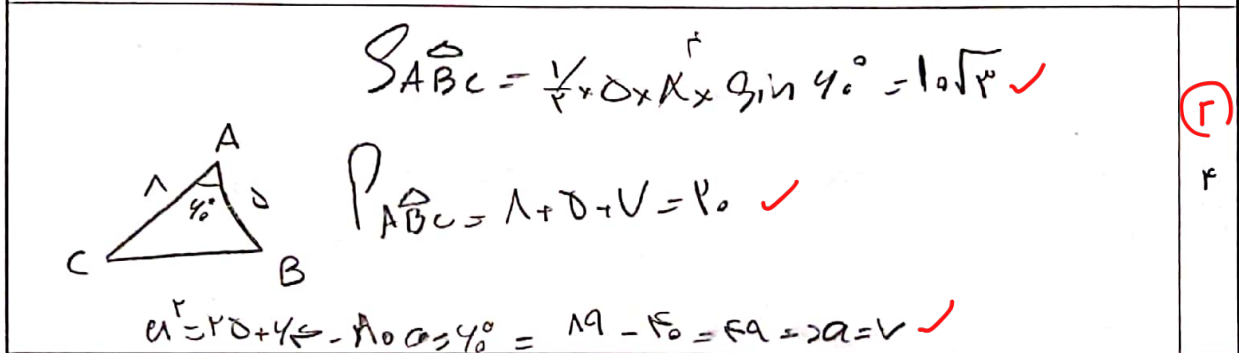 S ABC = ۱/۲ × ۵ × ۸ × sin ۶۰° = ۱۰√۳ ✓
۴
۲
A
۸ ۶۰° ۵
P ABC = ۸ + ۵ + ۷ = ۲۰ ✓
۴
C B
a² = ۲۵ + ۶۴ - ۸۰ cos ۶۰° = ۸۹ - ۴۰ = ۴۹ => a = ۷ ✓